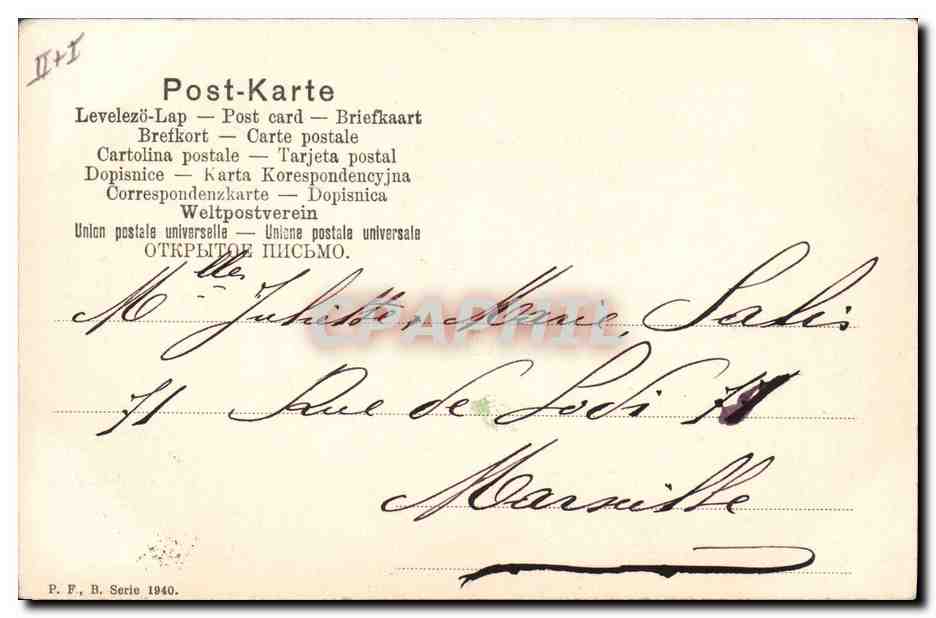 II+I
Post-Karte
Levelezö-Lap — Post card — Briefkaart
Brefkort — Carte postale
Cartolina postale — Tarjeta postal
Dopisnice — Karta Korespondencyjna
Correspondenzkarte — Dopisnica
Weltpostverein
Union postale universelle — Unione postale universale
ОТКРЫТОЕ ПИСЬМО.
Mlles Juliette, Marie, Salis
CPAPHIL
71 Rue de Lodi 71
Marseille
P. F., B. Serie 1940.